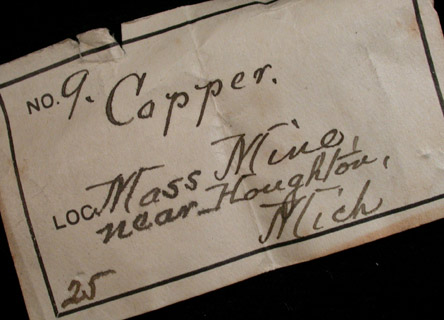 NO. 9. Copper.
LOC. Mass Mine,
near Houghton,
Mich
25